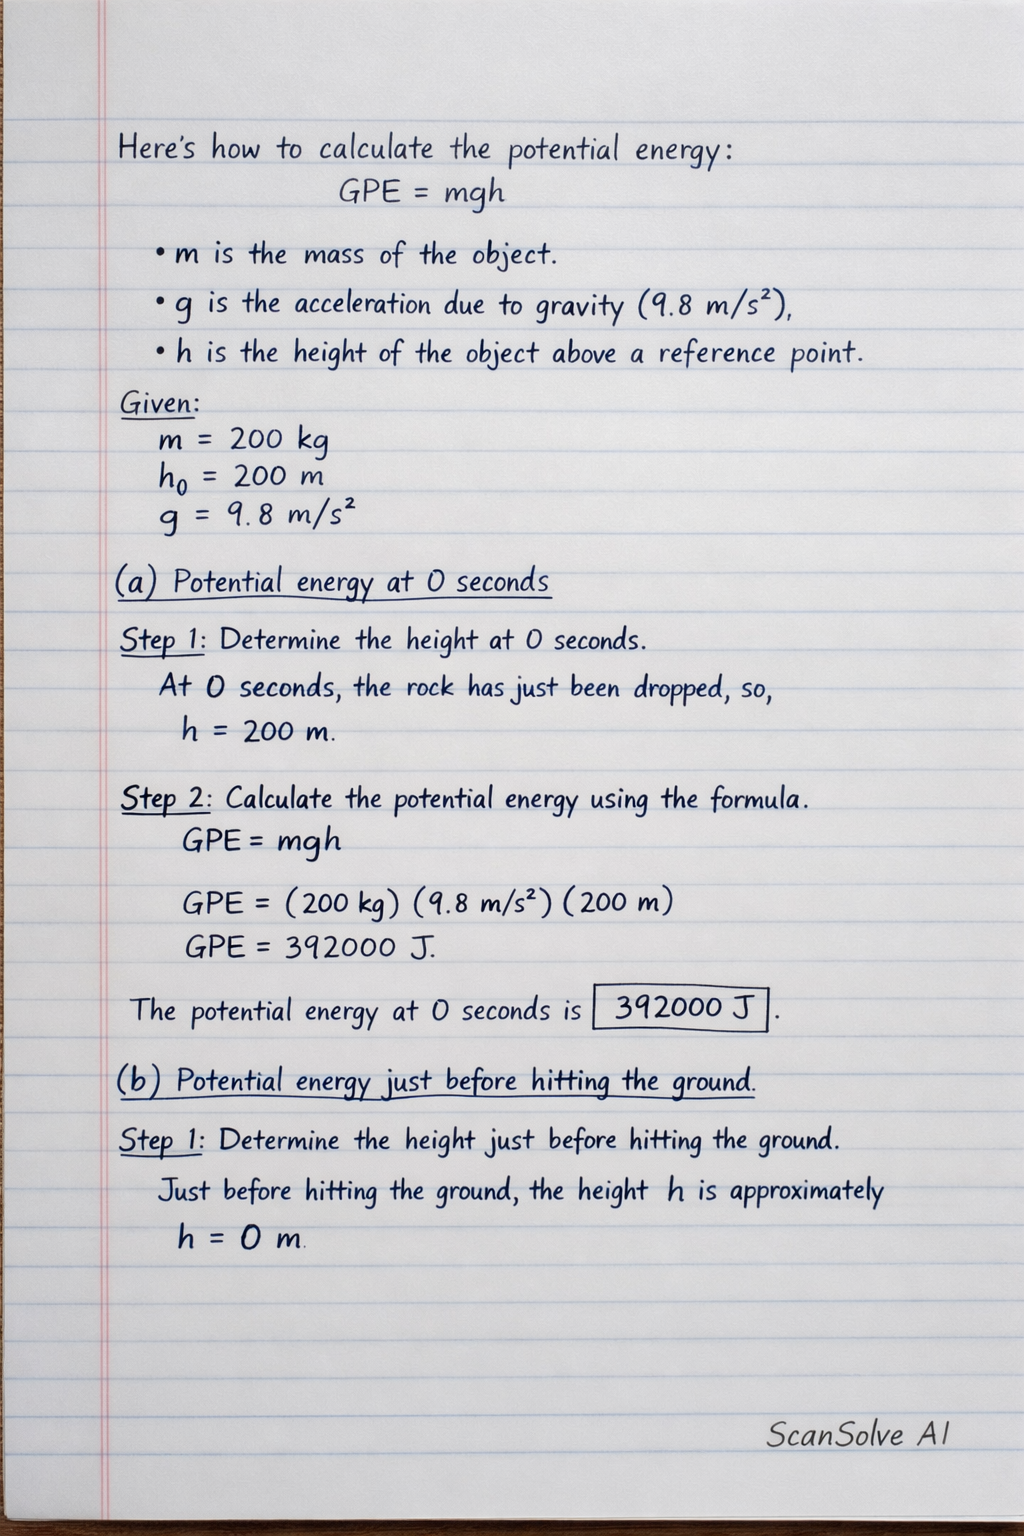 Here's how to calculate the potential energy:
GPE = mgh
• m is the mass of the object.
• g is the acceleration due to gravity (9.8 m/s²),
• h is the height of the object above a reference point.
Given:
m = 200 kg
h₀ = 200 m
g = 9.8 m/s²
(a) Potential energy at 0 seconds
Step 1: Determine the height at 0 seconds.
At 0 seconds, the rock has just been dropped, so,
h = 200 m.
Step 2: Calculate the potential energy using the formula.
GPE = mgh
GPE = (200 kg) (9.8 m/s²) (200 m)
GPE = 392000 J.
The potential energy at 0 seconds is 392000 J.
(b) Potential energy just before hitting the ground.
Step 1: Determine the height just before hitting the ground.
Just before hitting the ground, the height h is approximately
h = 0 m.
ScanSolve AI